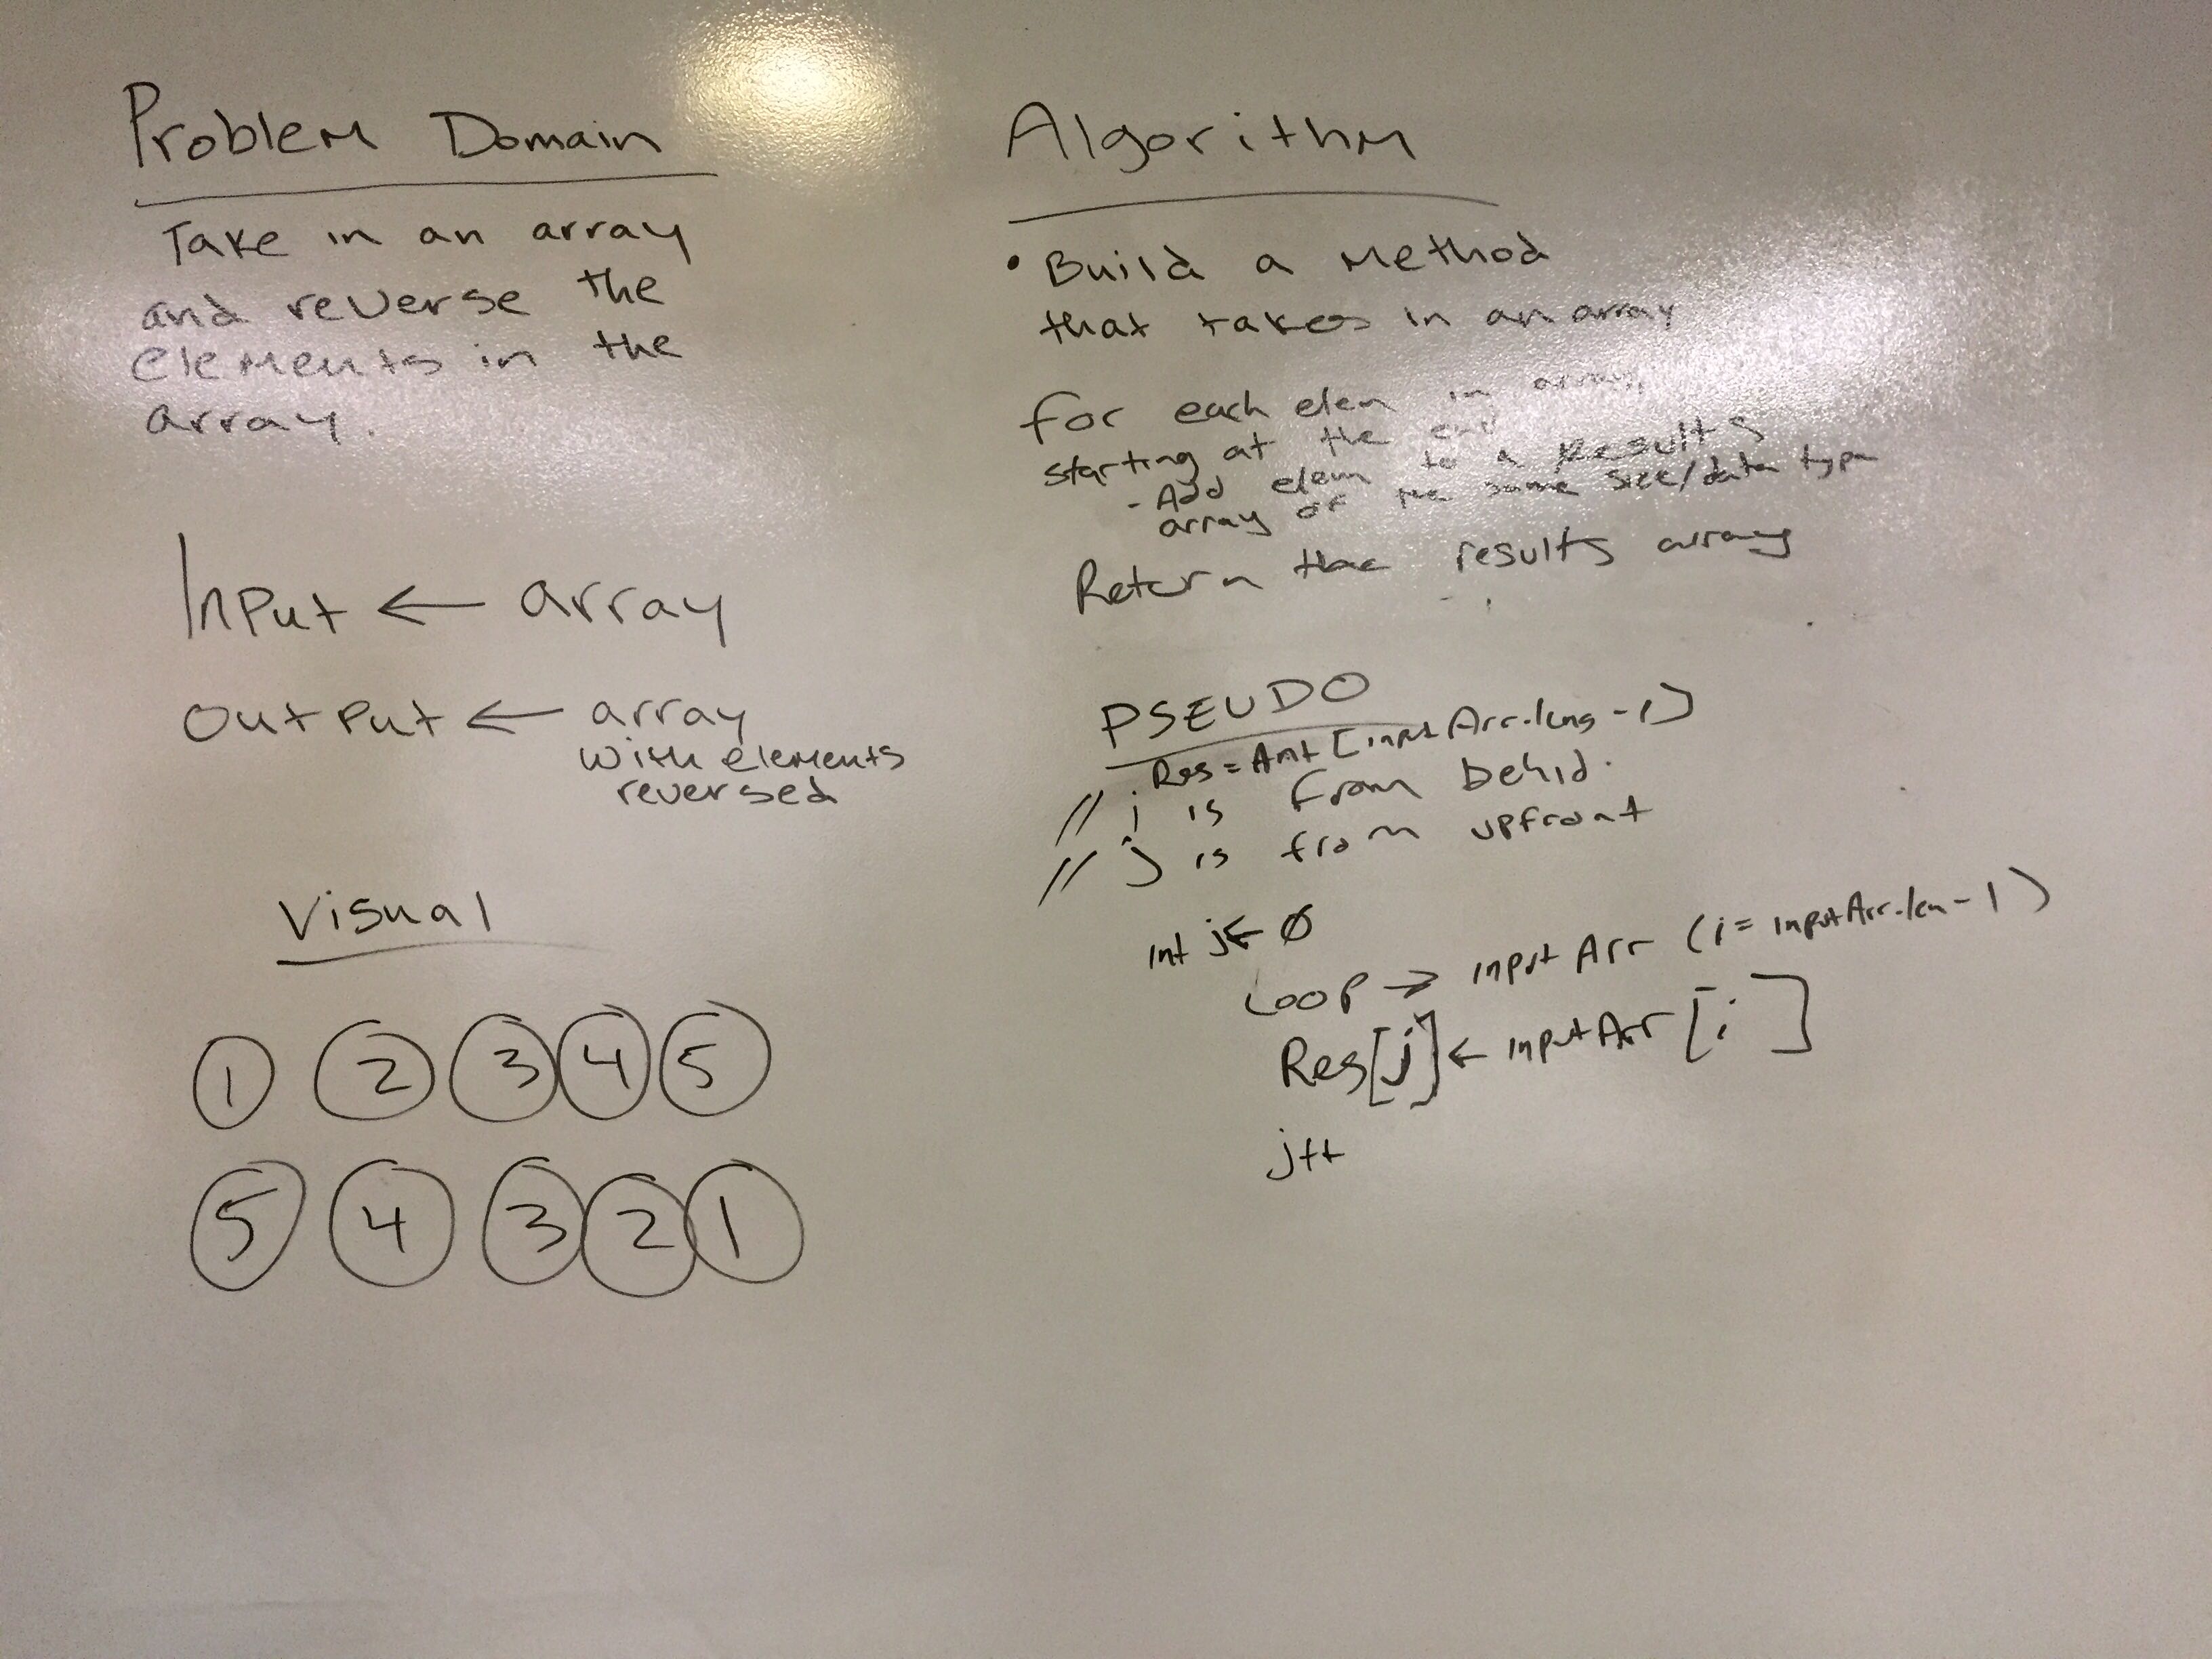 Problem Domain
Take in an array
and reverse the
elements in the
array.
Input ← array
Output ← array
with elements
reversed
Visual
1 2 3 4 5
5 4 3 2 1
Algorithm
• Build a method
that takes in an array
for each elem in array,
starting at the end
- Add elem to a Results
array of the same size/data type
Return the results array
PSEUDO
Res = [inputArr.leng -1]
// i is from behid.
// j is from upfront
int j ← 0
LOOP → inputArr (i = inputArr.len - 1)
Res[j] ← inputArr [i]
j++